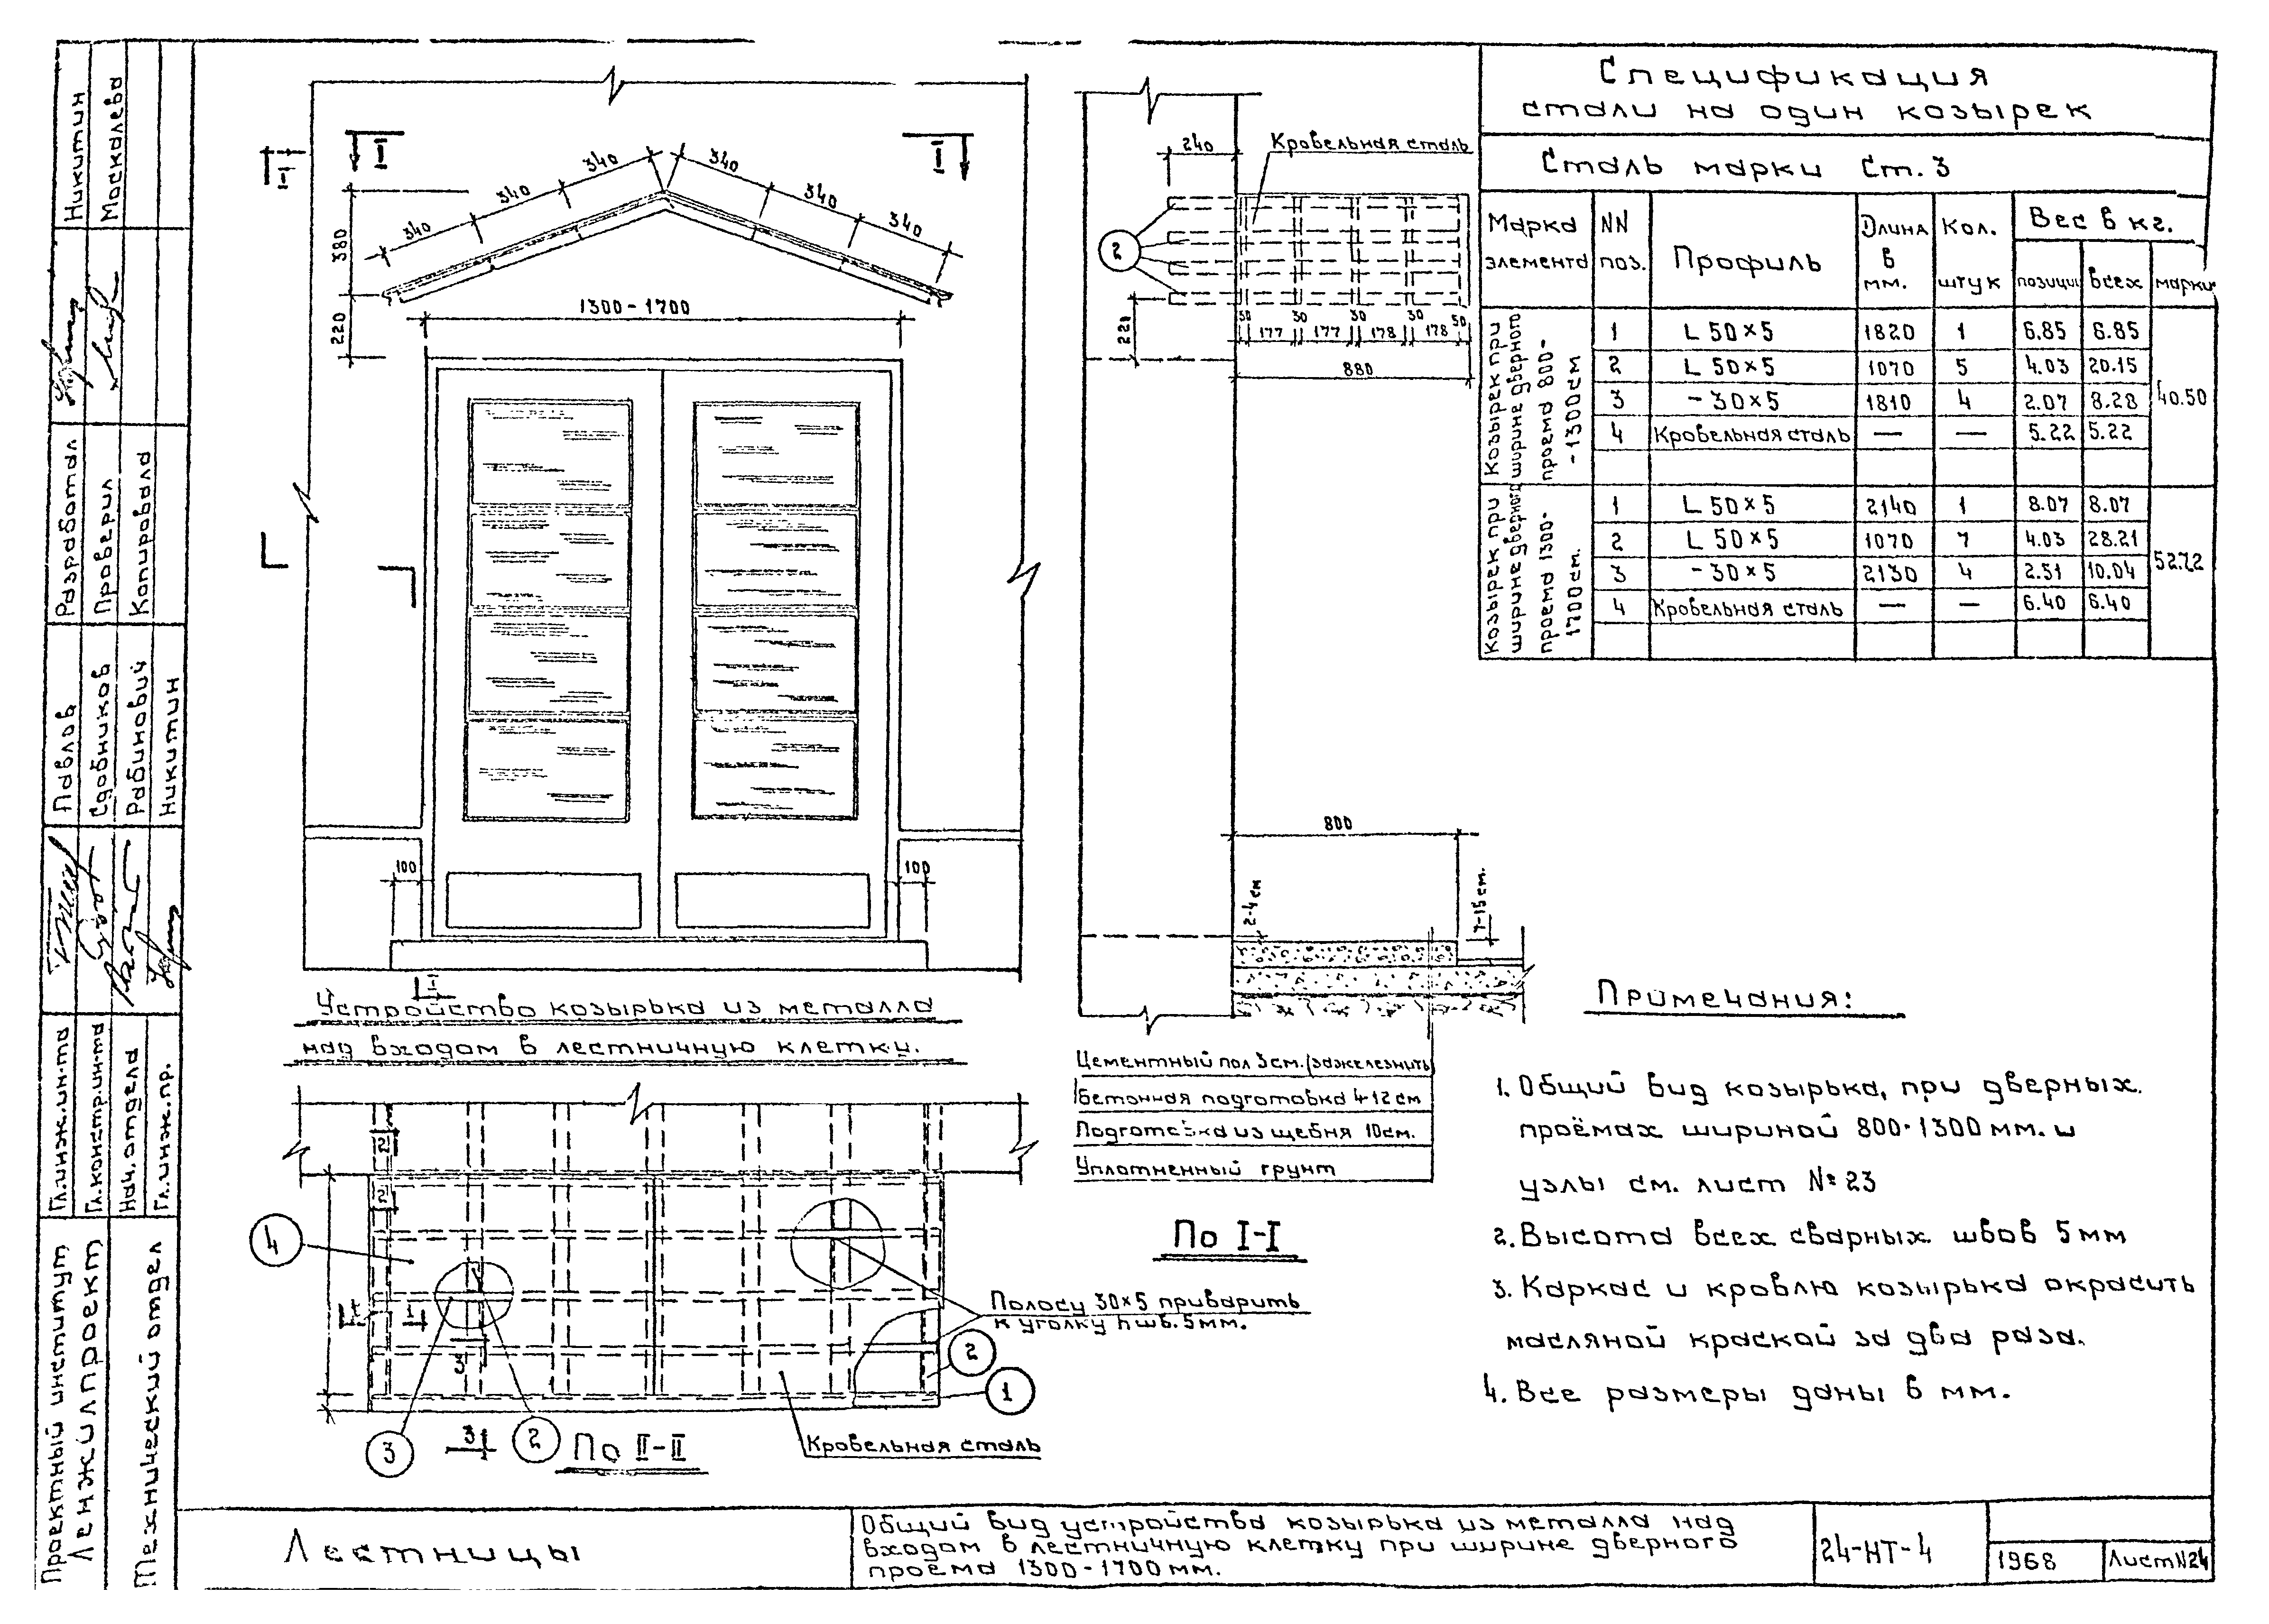 Спецификация
стали на один козырек
Сталь марки Ст.3
Марка элемента
NN поз.
Профиль
Длина в мм.
Кол. штук
Вес в кг.
позиции всех марки
Козырек при ширине дверного проема 800--1300см
1 L 50×5 1820 1 6.85 6.85
2 L 50×5 1070 5 4.03 20.15
3 -30×5 1810 4 2.07 8.28
4 Кровельная сталь — — 5.22 5.22
40.50
Козырек при ширине дверного проема 1300-1700см.
1 L 50×5 2140 1 8.07 8.07
2 L 50×5 1070 7 4.03 28.21
3 -30×5 2130 4 2.51 10.04
4 Кровельная сталь — — 6.40 6.40
52.72
I I
I
340 340 340 340 340 340
380
220
1300-1700
100 100
I
Устройство козырька из металла
над входом в лестничную клетку.
240
Кровельная сталь
2
221
50 177 30 177 30 178 30 178 50
880
800
2-4см
7-15см.
Цементный пол 3см. (зажелезнить)
Бетонная подготовка 4-12см
Подготовка из щебня 10см.
Уплотненный грунт
По I-I
2
2
4
1 1
3
Полосу 30×5 приварить
к уголку hшв.5мм.
2
1
3
3
2
По II-II
Кровельная сталь
Примечания:
1. Общий вид козырька, при дверных
проёмах шириной 800-1300мм. и
узлы см. лист №23
2. Высота всех сварных швов 5мм
3. Каркас и кровлю козырька окрасить
масляной краской за два раза.
4. Все размеры даны в мм.
Никитин
Москалева
Разработал
Проверил
Копировала
Павлов
Сдобников
Рабинович
Никитин
Гл.инж.ин-та
Гл.констр.ин-та
Нач.отдела
Гл.инж.пр.
Проектный институт
Ленжилпроект
Технический отдел
Лестницы
Общий вид устройства козырька из металла над
входом в лестничную клетку при ширине дверного
проема 1300-1700мм.
24-НТ-4
1968
Лист N24